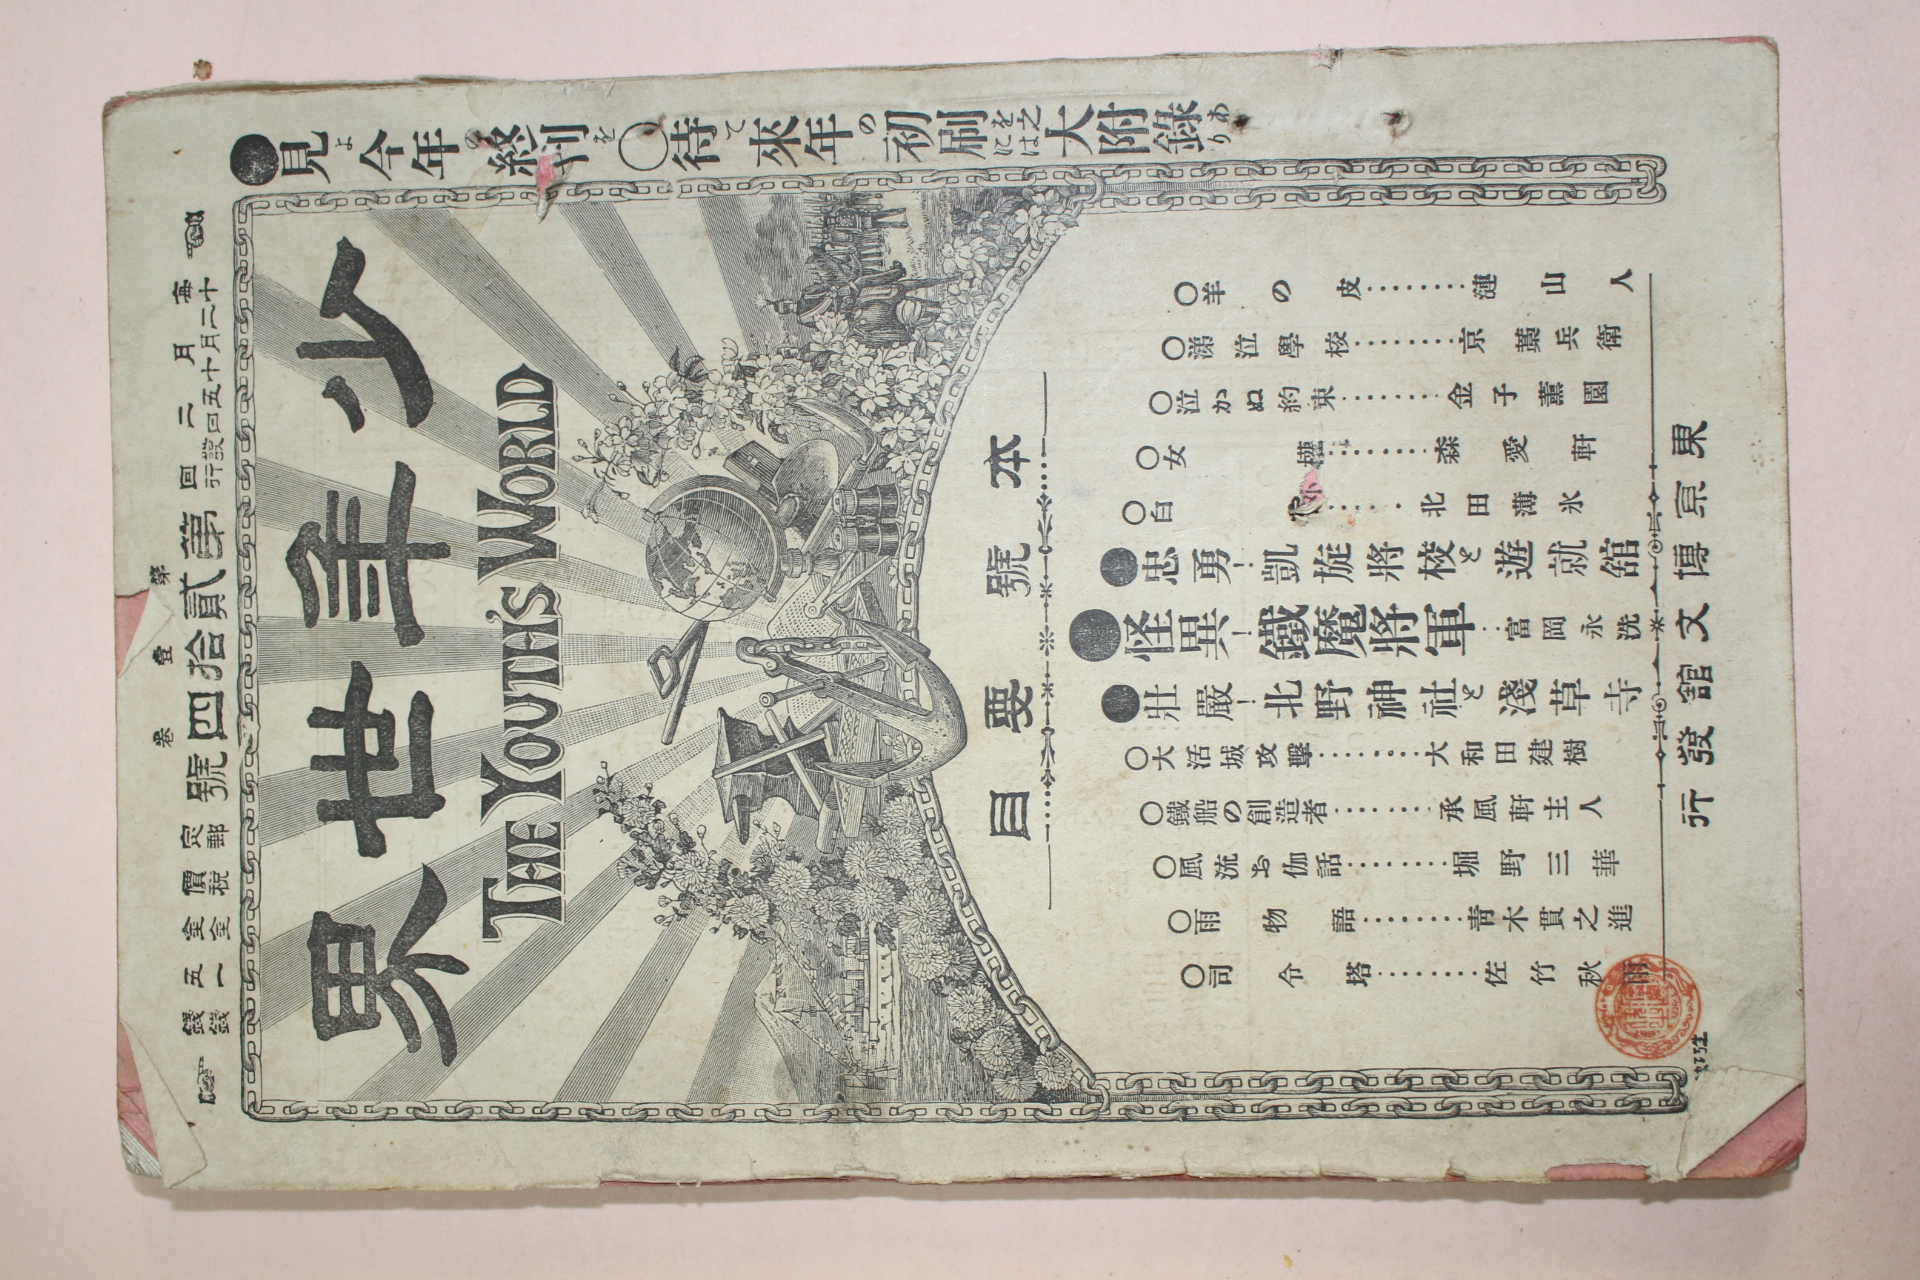 ●見よ今年の終刊を○待て來年の初刷を之には大附錄あり
毎月二回
第貳拾四號
第壹卷
定價金五錢
郵税金一錢
少年世界
THE YOUTH'S WORLD
本號要目
○羊の皮………漣山人
○涕泣學校………京藁兵衛
○泣かぬ約束………金子薫園
○女權………森愛軒
○白………北田薄氷
●忠勇!凱旋將校と遊就舘
●怪異!鐵魔將軍…富岡永洗
●壯嚴!北野神社と淺草寺
○大活城攻擊………大和田建樹
○鐵船の創造者………承風軒主人
○風流お伽話………堀野三華
○雨物語………青木貫之進
○司令塔………佐竹秋雨
東京博文舘發行